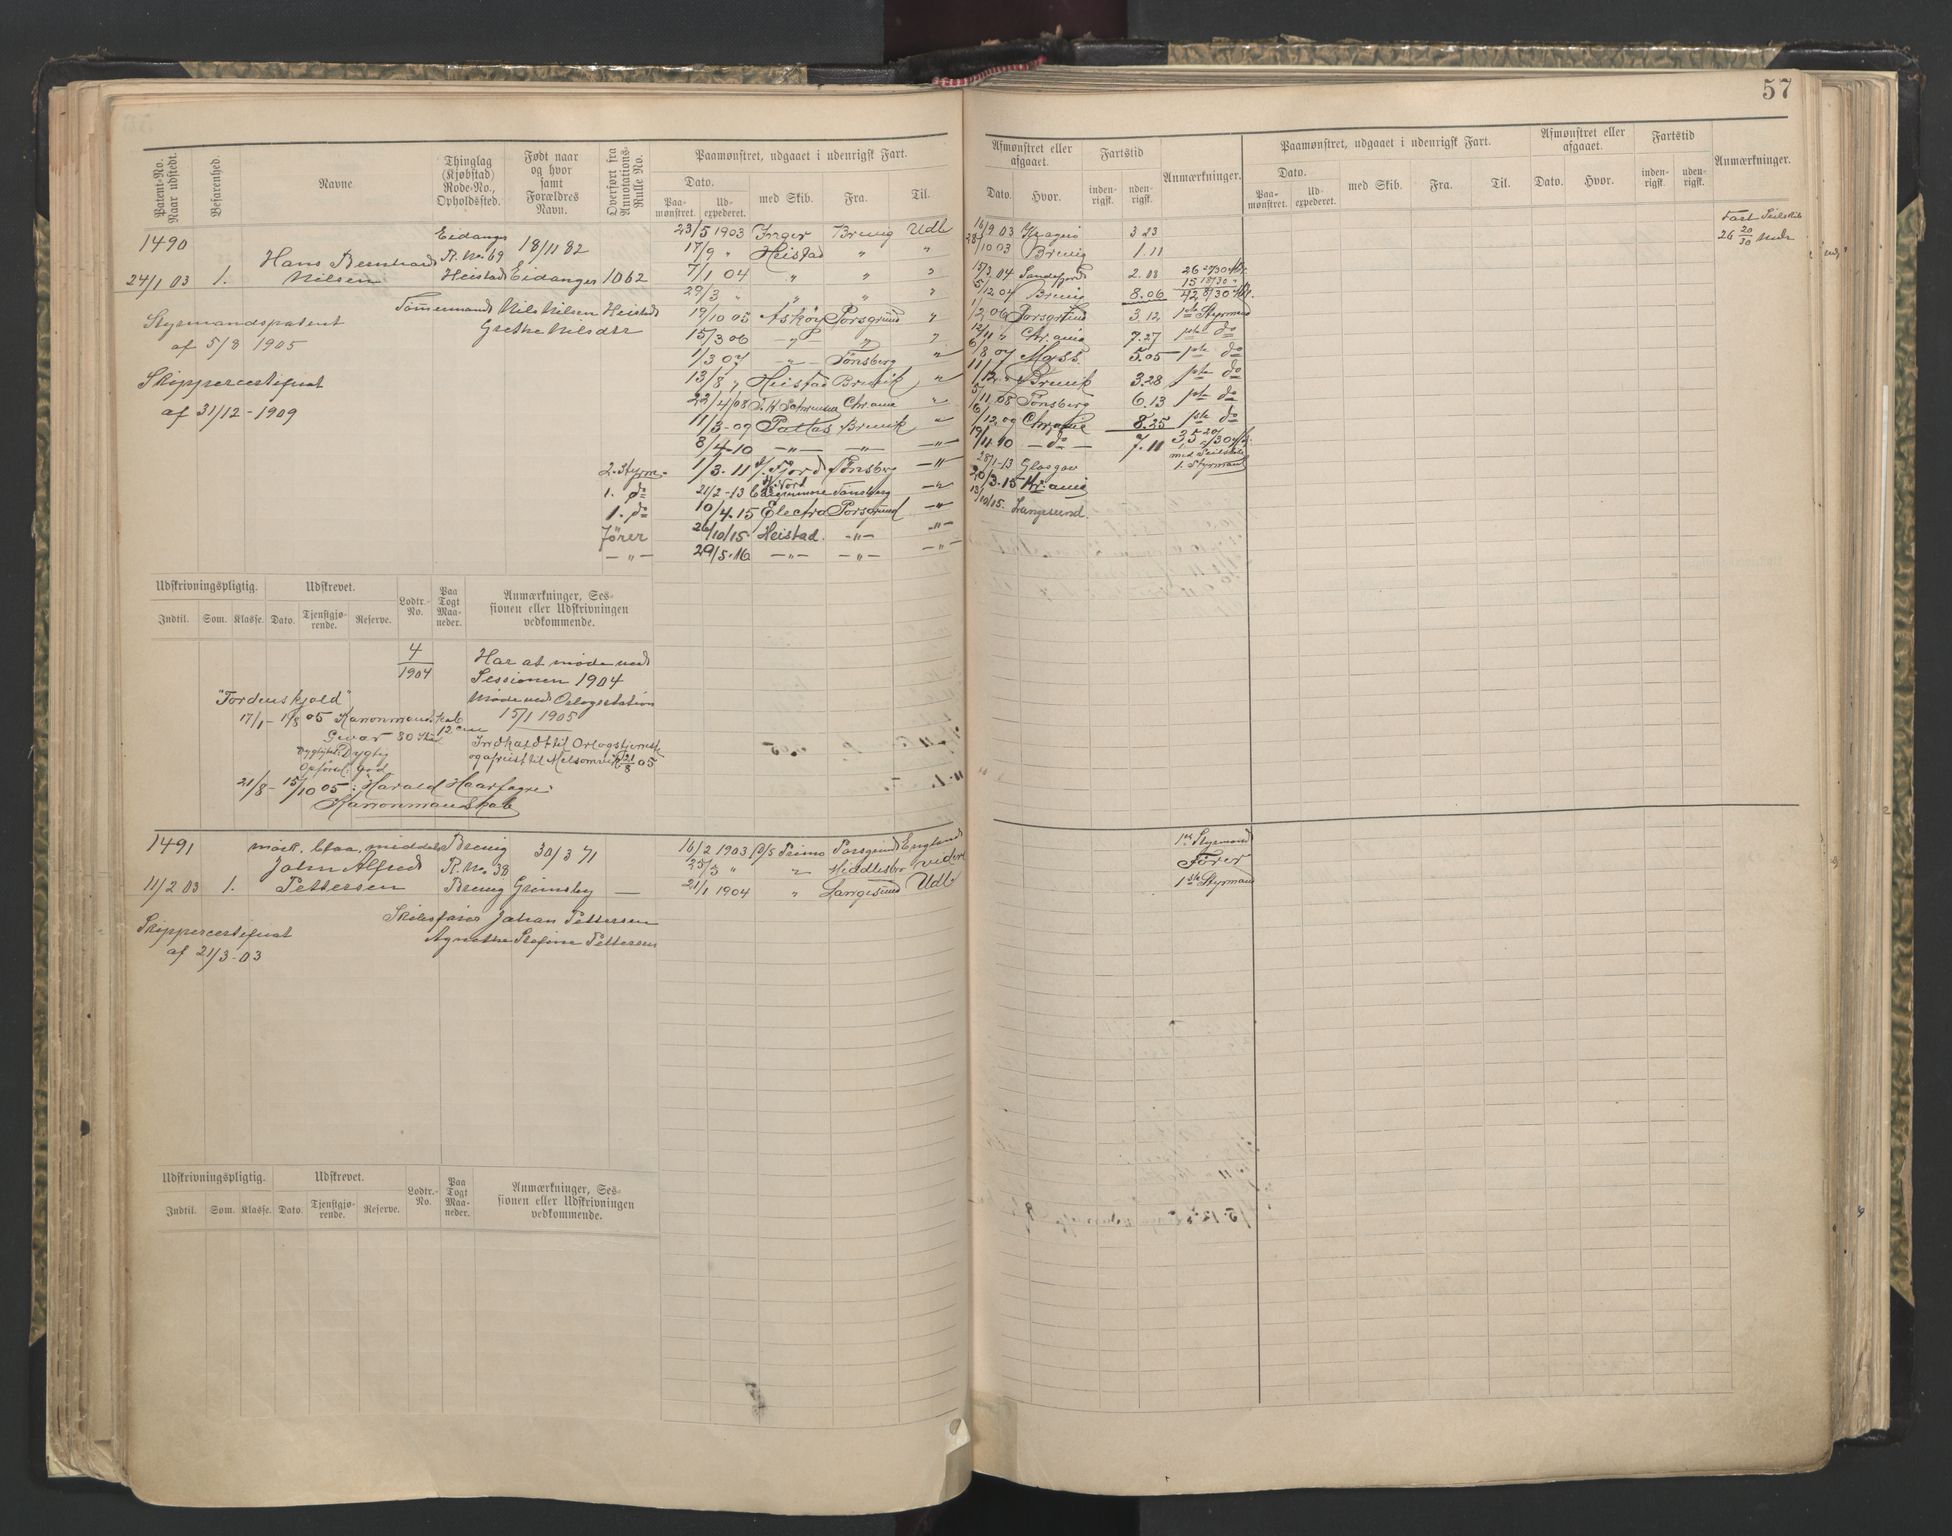 57
Patent-No. Naar udstedt.
Befarenhed.
Navne.
Thinglag (Kjøbstad) Rode-No., Opholdssted.
Født naar og hvor samt Forældres Navn.
Overført fra Annotations-Rulle No.
Paamønstret, udgaaet i udenrigsk Fart.
Dato.
Paamønstret.
Udexpederet.
med Skib.
Fra.
Til.
Afmønstret eller afgaaet.
Dato.
Hvor.
Fartstid
indenrigsk.
udenrigsk.
Anmærkninger.
Paamønstret, udgaaet i udenrigsk Fart.
Dato.
Paamønstret.
Udexpederet.
med Skib.
Fra.
Til.
Afmønstret eller afgaaet.
Dato.
Hvor.
Fartstid
indenrigsk.
udenrigsk.
Anmærkninger.
1490
Hans Bernhard
Nilsen
Eidanger
R. No 69
Heistad
18/11 82
Eidanger
1062
24/1 03 1.
Tømmermand Nils Nilsen Heistad
Grethe Nilsdtr
Styrmandspatent
af 5/8 1905
Skippercertifikat
af 31/12 - 1909
23/5 1903 Inger Brevig Udl
17/9 " Heistad " "
7/1 04 " " "
29/3 " " " "
19/10 05 Askøy Porsgrund "
15/3 06 -"- " "
1/3 07 -"- Tønsberg "
13/8 " Heistad Brevik "
22/4/08 Chr.ania "
11/3-09 Pallas Brevik "
8/4-10 -"- -"- -"-
2. Styrm. 1/3-11 Fjord Tønsberg -"-
1. do 21/2-13 Tønsberg -"-
1. do 10/4.15 Electra Porsgrund -"-
Fører 26/10/15 Heistad. -"- -"-
-"- 29/5-16 -"- -"- -"-
16/9 03 Kragerø 3 23
28/10 03 Brevig 1.11
15/3.04 Sandefjord 2.08
5/12 04 Brevig 8.06
1/2.06 Porsgrund 3.12 1ste Styrmand
12/11 " Chr.ania 7.27 1ste do
6/8 07 Moss 5.05 1ste do
11/12 " Brevik 3.28 1ste do
5/11 08 Tønsberg 6.13 1ste do
16/12 09 Chr.ania 8.25 1ste do
19/11 10 -do- 7.11
med Seilskib
1. Styrmand
28/1-13 Glasgow
20/3-15 Kr.ania
13/10/15. Langesund.
Fart Seilskib
26 20/30 Mdr
Udskrivningspligtig.
Indtil.
Som.
Klasse.
Udskrevet.
Dato.
Tjenstgjørende.
Reserve.
Lodtr.-No.
Paa Togt Maaneder.
Anmærkninger, Sessionen eller Udskrivningen vedkommende.
4
1904
Har at møde ved
Sessionen 1904
"Tordenskjold"
Møde ved Orlogsstation
15/1 1905
Gevær 80
Dygtighed: Dygtig
Opførsel: God
Indkaldt til Orlogstjeneste
21/8 - 15/10 05: Harald Haarfagre
Kanonmandskab
1491
John Alfred
Pettersen
Brevig
R. No. 38
Brevig
30/3 71
Grimsby
—
11/2 03 1.
Skibsfører Johan Pettersen
Skippercertifikat
af 21/3-03
16/2 1903 D/S Primo Porsgrund England
25/3 " " Middlesbro
21/1 1904 " Langesund Udl
1ste Styrmand
Fører
1ste Styrmand
Udskrivningspligtig.
Indtil.
Som.
Klasse.
Udskrevet.
Dato.
Tjenstgjørende.
Reserve.
Lodtr.-No.
Paa Togt Maaneder.
Anmærkninger, Sessionen eller Udskrivningen vedkommende.